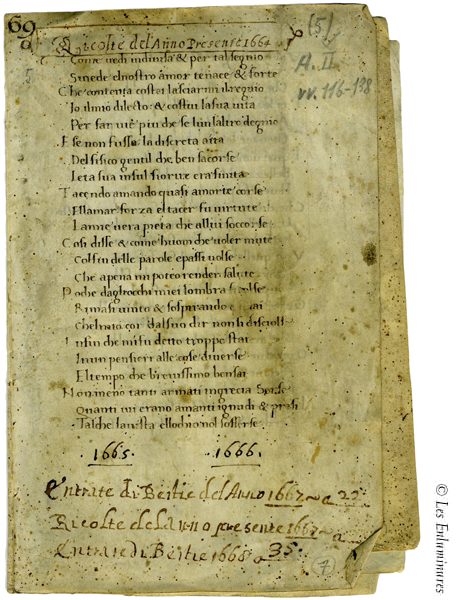 69
(5)
Ricolte del'Anno Presente 1664
A. II
vv. 116-138
Come vedi indivisa & per tal segnio
Si vede el nostro amor tenace & forte
Che contenta costei lasciarmi il regnio
Io il mio dilecto & costui la sua vita
Per far vie piu che se l un l altro degnio
E se non fusse la discreta aita
Del fisico gentil che ben sacorse
Leta sua in sul fiorire era finita
Tacendo amando quasi a morte corse
El amar forza el tacer fu virtute
La mie vera pieta che allui soccorse
Cosi disse & come huom che voler mute
Col fin delle parole e passi volse
Che apena mi poteo render salute
Poche dagliocchi miei lombra si tolse
Rimasi vinto & sospirando
Chel mio cor dal suo dir non si disciolse
Infin che mi fu detto troppo stai
In un pensier alle cose diverse
El tempo che brevissimo ben sai
Non meno tanti armati in grecia Serse
Quanti ivi erano amanti ignudi & presi
Tal che la vista ellochio nol sofferse
1665. 1666.
Entrate di Bestie del Anno 1667 a 22
Ricolte del anno presente 1667 a
Entrate di Bestie 1668 a 35.
7
© Les Enluminures